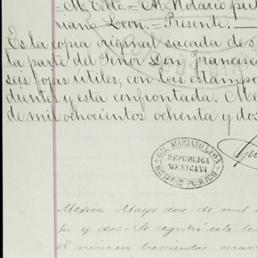 —M. Tello.—M. Notario pub
riano Leon.—Presente.
Es la copia original sacada de s
la parte del Señor Don Francisc
seis fojas utiles, con las estamp
dientes y esta confrontada. Me
de mil ochocientos ochenta y dos
GIL MARIANO LEON
REPUBLICA
MEXICANA
NOTARIO PUBLICO
Mexico Mayo dos de mil
ta y dos. Se registró este
el número trescientos